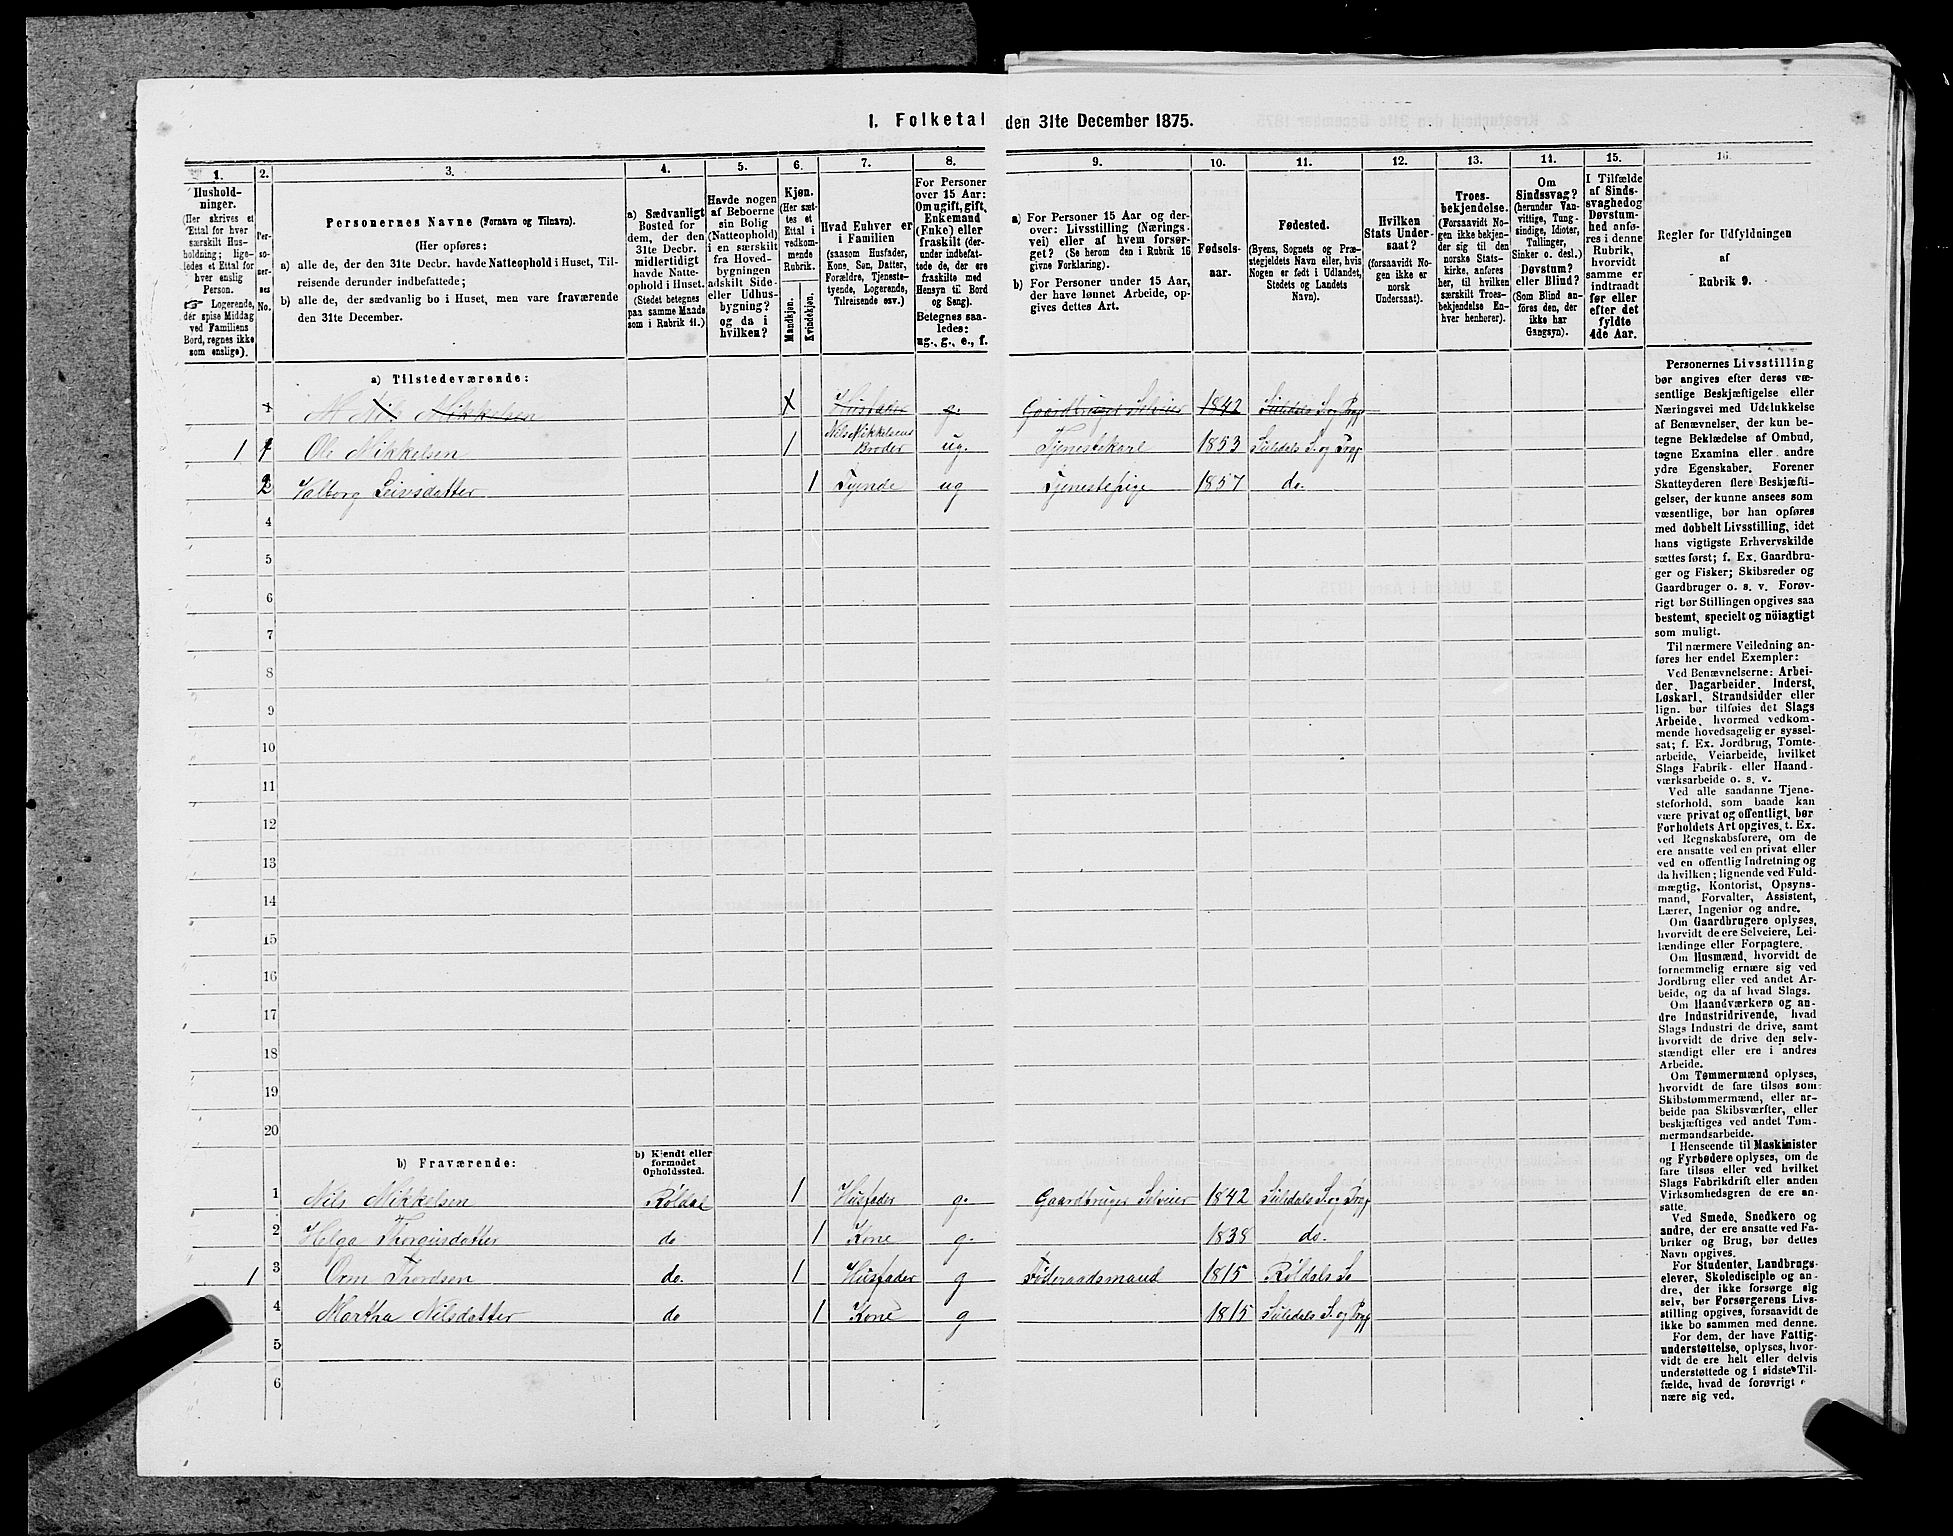 1. Folketal den 31te December 1875.
1. 2. 3. 4. 5. 6. 7. 8. 9. 10. 11. 12. 13. 14. 15. 16.
Hushold-
ninger.
(Her skrives et
Ettal for hver
særskilt Hus-
holdning; lige-
ledes et Ettal for
hver enslig
Person.
☞ Logerende,
der spise Middag
ved Familiens
Bord, regnes ikke
som enslige).
Per-
so-
ner-
nes
No.
Personernes Navne (Fornavn og Tilnavn).
(Her opføres:
a) alle de, der den 31te Decbr. havde Natteophold i Huset, Til-
reisende derunder indbefattede;
b) alle de, der sædvanlig bo i Huset, men vare fraværende
den 31te December.
a) Sædvanligt
Bosted for
dem, der den
31te Decbr.
midlertidigt
havde Natte-
ophold i Huset.
(Stedet betegnes
paa samme Maade
som i Rubrik 11.)
Havde nogen
af Beboerne
sin Bolig
(Natteophold)
i en særskilt
fra Hoved-
bygningen
adskilt Side-
eller Udhus-
bygning?
og da i
hvilken?
Kjøn.
(Her sæt-
tes et
Ettal i
vedkom-
mende
Rubrik.
Mandkjøn.
Kvindekjøn.
Hvad Enhver er
i Familien
(saasom Husfader,
Kone, Søn, Datter,
Forældre, Tjeneste-
tyende, Logerende,
Tilreisende osv.)
For Personer
over 15 Aar:
Om ugift, gift,
Enkemand
(Enke) eller
fraskilt (der-
under indbefat-
tede de, der ere
fraskilte med
Hensyn til Bord
og Seng).
Betegnes saa-
ledes:
ug., g., e., f.
a) For Personer 15 Aar og der-
over: Livsstilling (Nærings-
vei) eller af hvem forsør-
get? (Se herom den i Rubrik 16
givne Forklaring).
b) For Personer under 15 Aar,
der have lønnet Arbeide, op-
gives dettes Art.
Fødsels-
aar.
Fødested.
(Byens, Sognets og Præ-
stegjeldets Navn eller, hvis
Nogen er født i Udlandet,
Stedets og Landets
Navn).
Hvilken
Stats Under-
saat?
(forsaavidt No-
gen ikke er
norsk
Undersaat).
Troes-
bekjendelse.
(Forsaavidt No-
gen ikke bekjen-
der sig til den
norske Stats-
kirke, anføres
her, til hvilken
særskilt Troes-
bekjendelse En-
hver henhører).
Om
Sindssvag?
(herunder Van-
vittige, Tung-
sindige, Idioter,
Tullinger,
Sinker o. desl.)
Døvstum?
eller Blind?
(Som Blind an-
føres den, der
ikke har
Gangsyn).
I Tilfælde
af Sinds-
svaghed og
Døvstum-
hed anfø-
res i denne
Rubrik,
hvorvidt
samme er
indtraadt
før eller
efter det
fyldte
4de Aar.
Regler for Udfyldningen
af
Rubrik 9.
a) Tilstedeværende:
1 Nils Mikkelsen X Husfader g. Gaardbruger Selveier 1842 Suledals S. og Prgj
1 1 Ole Mikkelsen 1 Nils Mikkelsens Broder ug. Tjenestekarl 1853 Suledals S. og Prgj
2 Valborg Leivsdatter 1 Tyende ug Tjenestepige 1857 do.
4
5
6
7
8
9
10
11
12
13
14
15
16
17
18
19
20
b) Fraværende:
b) Kjendt eller
formodet
Opholdssted.
1 Nils Mikkelsen Røldal 1 Husfader g. Gaardbruger Selveier 1842 Suledals S. og Prgj
2 Helga Thorgiusdatter do 1 Kone g. 1838 do.
1 3 Orm Thordsen do. 1 Husfader g Føderaadsmand 1815 Røldals S
4 Martha Nilsdatter do 1 Kone g 1815 Suledals S. og Prgj
5
6
Personernes Livsstilling
bør angives efter deres væ-
sentlige Beskjæftigelse eller
Næringsvei med Udelukkelse
af Benævnelser, der kun be-
tegne Beklædelse af Ombud,
tagne Examina eller andre
ydre Egenskaber. Forener
Skatteyderen flere Beskjæfti-
gelser, der kunne ansees som
væsentlige, bør han opføres
med dobbelt Livsstilling, idet
hans vigtigste Erhvervskilde
sættes først; f. Ex. Gaardbru-
ger og Fisker; Skibsreder og
Gaardbruger o. s. v. Forøv-
rigt bør Stillingen opgives saa
bestemt, specielt og nöiagtigt
som muligt.
Til nærmere Veiledning an-
føres her endel Exempler:
Ved Benævnelserne: Arbei-
der, Dagarbeider, Inderst,
Løskarl, Strandsidder eller
lign. bør tilføies det Slags
Arbeide, hvormed vedkom-
mende hovedsagelig er syssel-
sat; f. Ex. Jordbrug, Tomte-
arbeide, Veiarbeide, hvilket
Slags Fabrik- eller Haand-
værksarbeide o. s. v.
Ved alle saadanne Tjene-
steforhold, som baade kan
være privat og offentligt, bør
Forholdets Art opgives, t. Ex.
ved Regnskabsførere, om de
ere ansatte ved en privat eller
ved en offentlig Indretning og
da hvilken; lignende ved Fuld-
mægtig, Kontorist, Opsyns-
mand, Forvalter, Assistent,
Lærer, Ingeniør og andre.
Om Gaardbrugere oplyses,
hvorvidt de ere Selveiere, Lei-
lændinge eller Forpagtere.
Om Husmænd, hvorvidt de
fornemmelig ernære sig ved
Jordbrug eller ved andet Ar-
beide, og da af hvad Slags.
Om Haandværkere og an-
dre Industridrivende, hvad
Slags Industri de drive, samt
hvorvidt de drive den selv-
stændigt eller ere i andres
Arbeide.
Om Tømmermænd oplyses,
hvorvidt de fare tilsøs som
Skibstømmermænd, eller ar-
beide paa Skibsværfter, eller
beskjæftiges ved andet Tøm-
mermandsarbeide.
I Henseende til Maskinister
og Fyrbødere oplyses, om de
fare tilsøs eller ved hvilket
Slags Fabrikdrift eller anden
Virksomhedsgren de ere an-
satte.
Ved Smede, Snedkere og
andre, der ere ansatte ved Fa-
briker og Brug, bør dettes
Navn opgives.
For Studenter, Landbrugs-
elever, Skoledisciple og an-
dre, der ikke forsørge sig
selv, bør Forsørgerens Livs-
stilling opgives, forsaavidt de
ikke bo sammen med denne.
For dem, der have Fattig-
understøttelse, oplyses, hvor-
vidt de ere helt eller delvis
understøttede og i sidste Til-
fælde, hvad de forøvrigt e
nære sig ved.